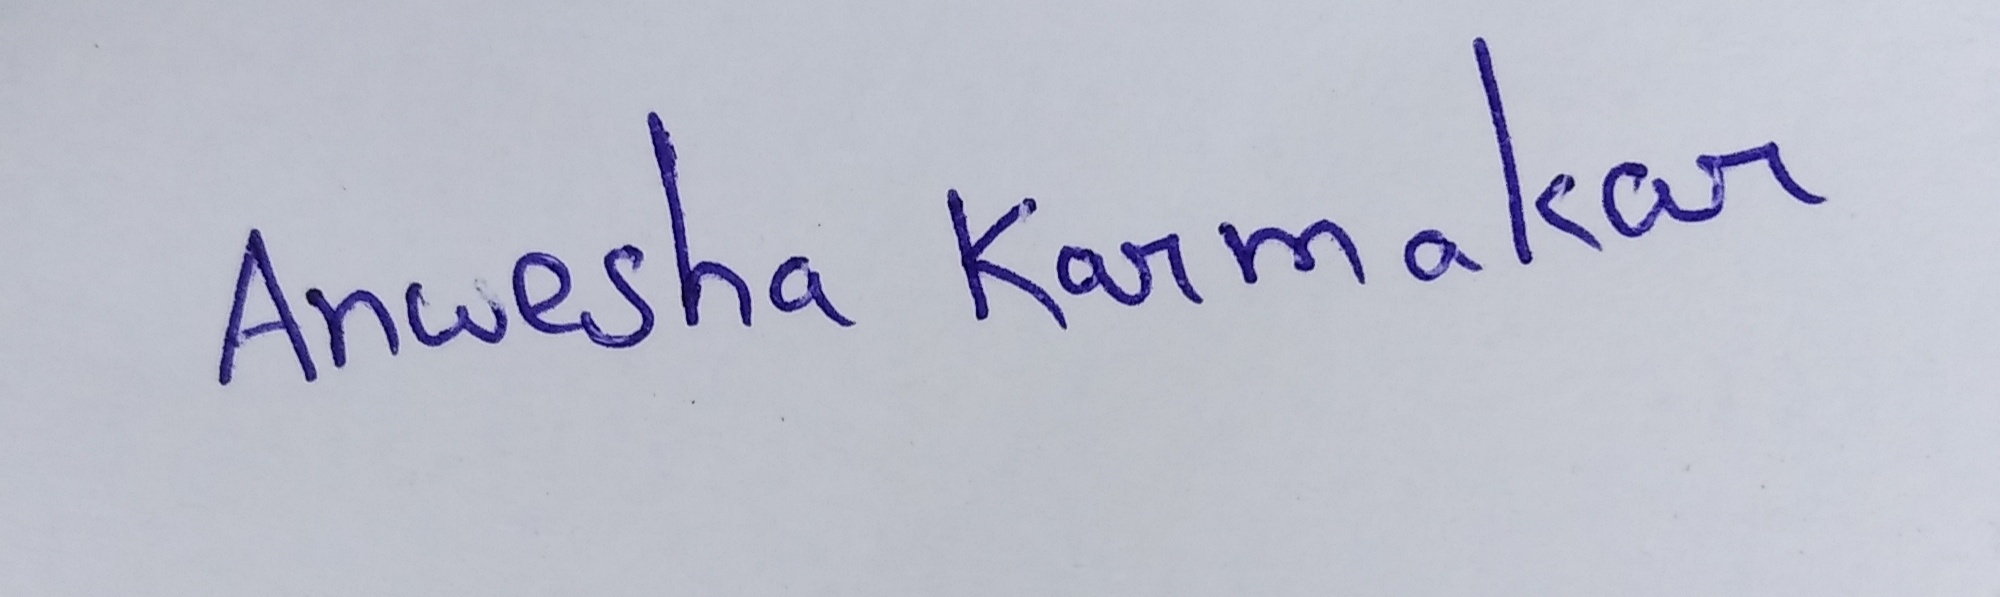 Anwesha Karmakar